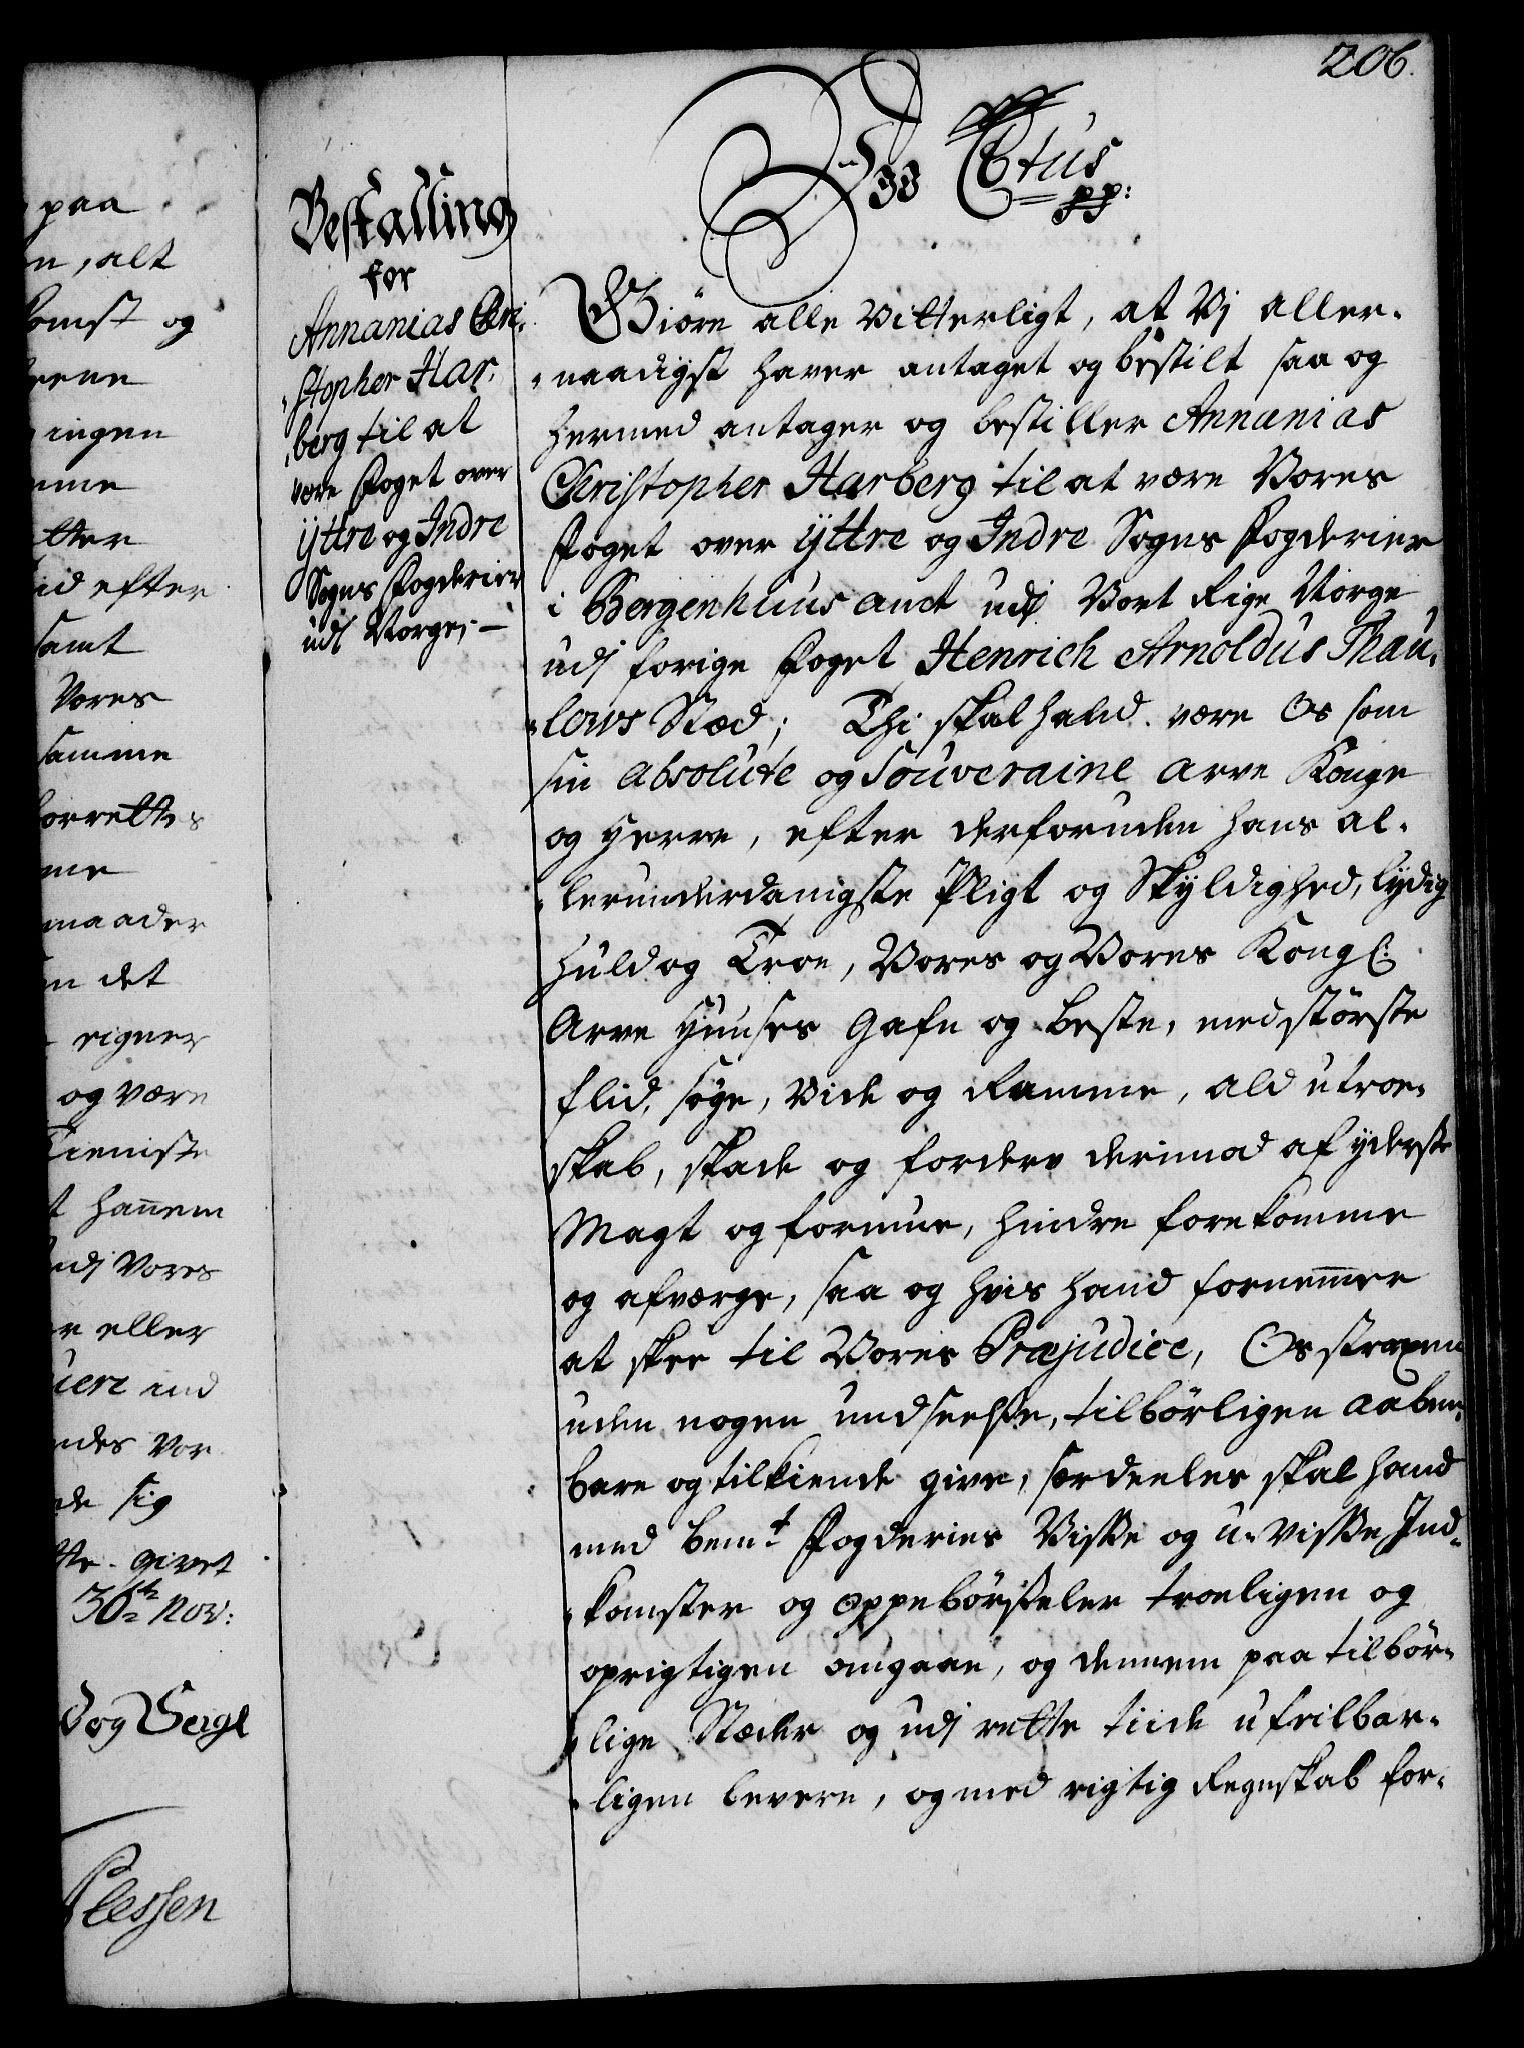 206.
paa
n, alt
komst og
ingen
efter
samt
Vores
samme
maader
n det
eigner
og være
Tieniste
hannem
udj Vores
eller
ind
Vor
de sig
givet
30th Nov:
Plessen
Bestalling
for
Annanias Chri-
stopher Har-
berg til at
være Foget over
Yttre og Indre
Sogns Fogderier
udj Norge; —
Ctus
pp:
Giøre alle Vitterligt, at Vj aller-
naadigst haver antaget og bestilt saa og
hermed antager og bestiller Annanias
Christopher Harberg til at være Vores
Foget over Yttre og Indre Sogns Fogderier
i Bergenhuus amt udj Vort Rige Norge
udj forige Foget Henrich Arnoldus Thau-
lows Stæd; Thi skal hand være Os som
sin absolute og Souveraine Arve Konge
og Herre, efter derforuden hans al-
lerunderdanigste Pligt og Skyldighed, lydig
huld og Troe, Vores og Vores Kongl:
Arve Huuses Gafn og beste, med største
flid, søge, vide og Ramme, ald utroe-
skab, skade og forderv derimod af yderste
Magt og formue, hindre forekomme
og afværge, saa og hvis hand fornemmer
at skee til Vores Præjudice, Os straxen
uden nogen undseelse, tilbørligen aaben-
bare og tilkiende give, særdeeles skal hand
med bemt Fogderies Visse og u-visse Ind-
komster og oppebørseler troeligen og
oprigtigen omgaae, og dennem paa tilbør-
lige Stæder og udj rette tiide ufeilbar-
ligen levere, og med rigtig Regnskab for-